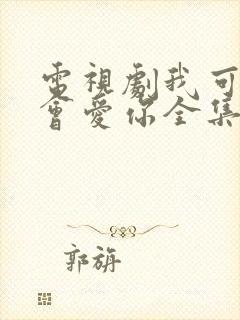 電視劇我可
會愛你全集
郭旃